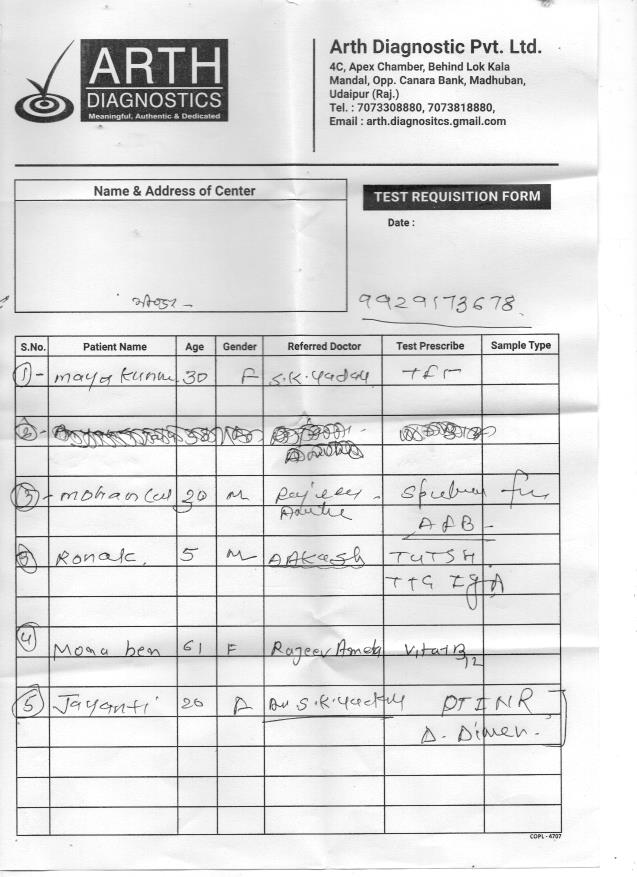 ARTH
DIAGNOSTICS
Meaningful, Authentic & Dedicated
Arth Diagnostic Pvt. Ltd.
4C, Apex Chamber, Behind Lok Kala
Mandal, Opp. Canara Bank, Madhuban,
Udaipur (Raj.)
Tel. : 7073308880, 7073818880,
Email : arth.diagnositcs.gmail.com
Name & Address of Center
TEST REQUISITION FORM
Date :
9929173678
S.No. Patient Name Age Gender Referred Doctor Test Prescribe Sample Type
1 - maya kunwr 30 F S.K. Yadav TFT
2 -
3 - mohan lal 20 M Rajeev - Sputum for
AFB -
Ronak. 5 M AAKash TUTSH
TTG IgA
4
Mona ben 61 F Rajeev Ameta Vita B12
5 Jayanti 20 F Dr S.K. Yadav PTINR
D. Dimer.
COPL - 4707